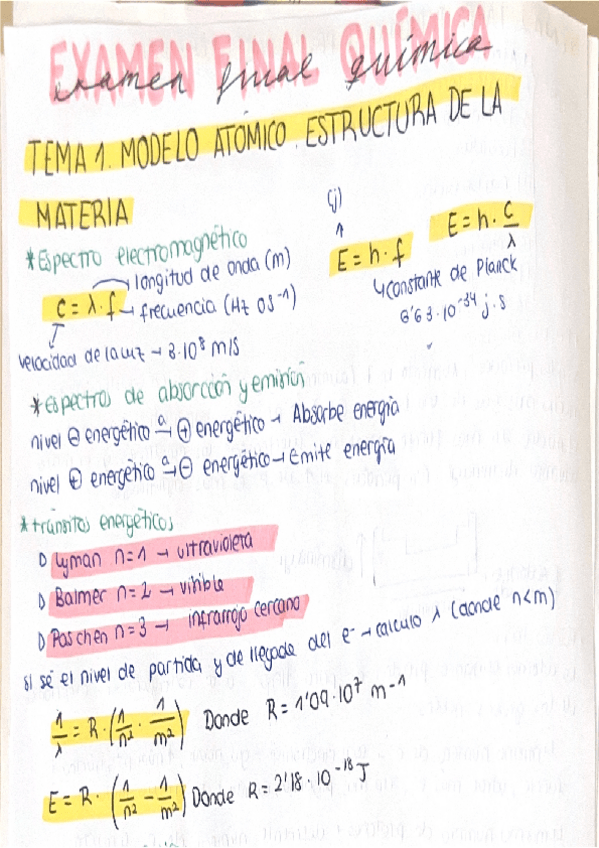 EXAMEN FINAL QUÍMICA
examen final química
TEMA 1. MODELO ATÓMICO. ESTRUCTURA DE LA
MATERIA
* Espectro electromagnético
longitud de onda (m)
c = λ · f → frecuencia (Hz o s⁻¹)
velocidad de la luz → 3·10⁸ m/s
(j)
↑
E = h · f
E = h · c/λ
↳ constante de Planck
6'63·10⁻³⁴ j·s
* espectros de absorción y emisión
nivel ⊖ energético →a ⊕ energético → Absorbe energía
nivel ⊕ energético →a ⊖ energético → Emite energía
* tránsitos energéticos
Lyman n=1 → ultravioleta
Balmer n=2 → visible
Paschen n=3 → infrarrojo cercano
si sé el nivel de partida y de llegada del e⁻ → calculo λ (donde n<m)
1/λ = R · (1/n² · 1/m²) Donde R = 1'09·10⁷ m-1
E = R · (1/n² - 1/m²) Donde R = 2'18·10⁻¹⁸ J